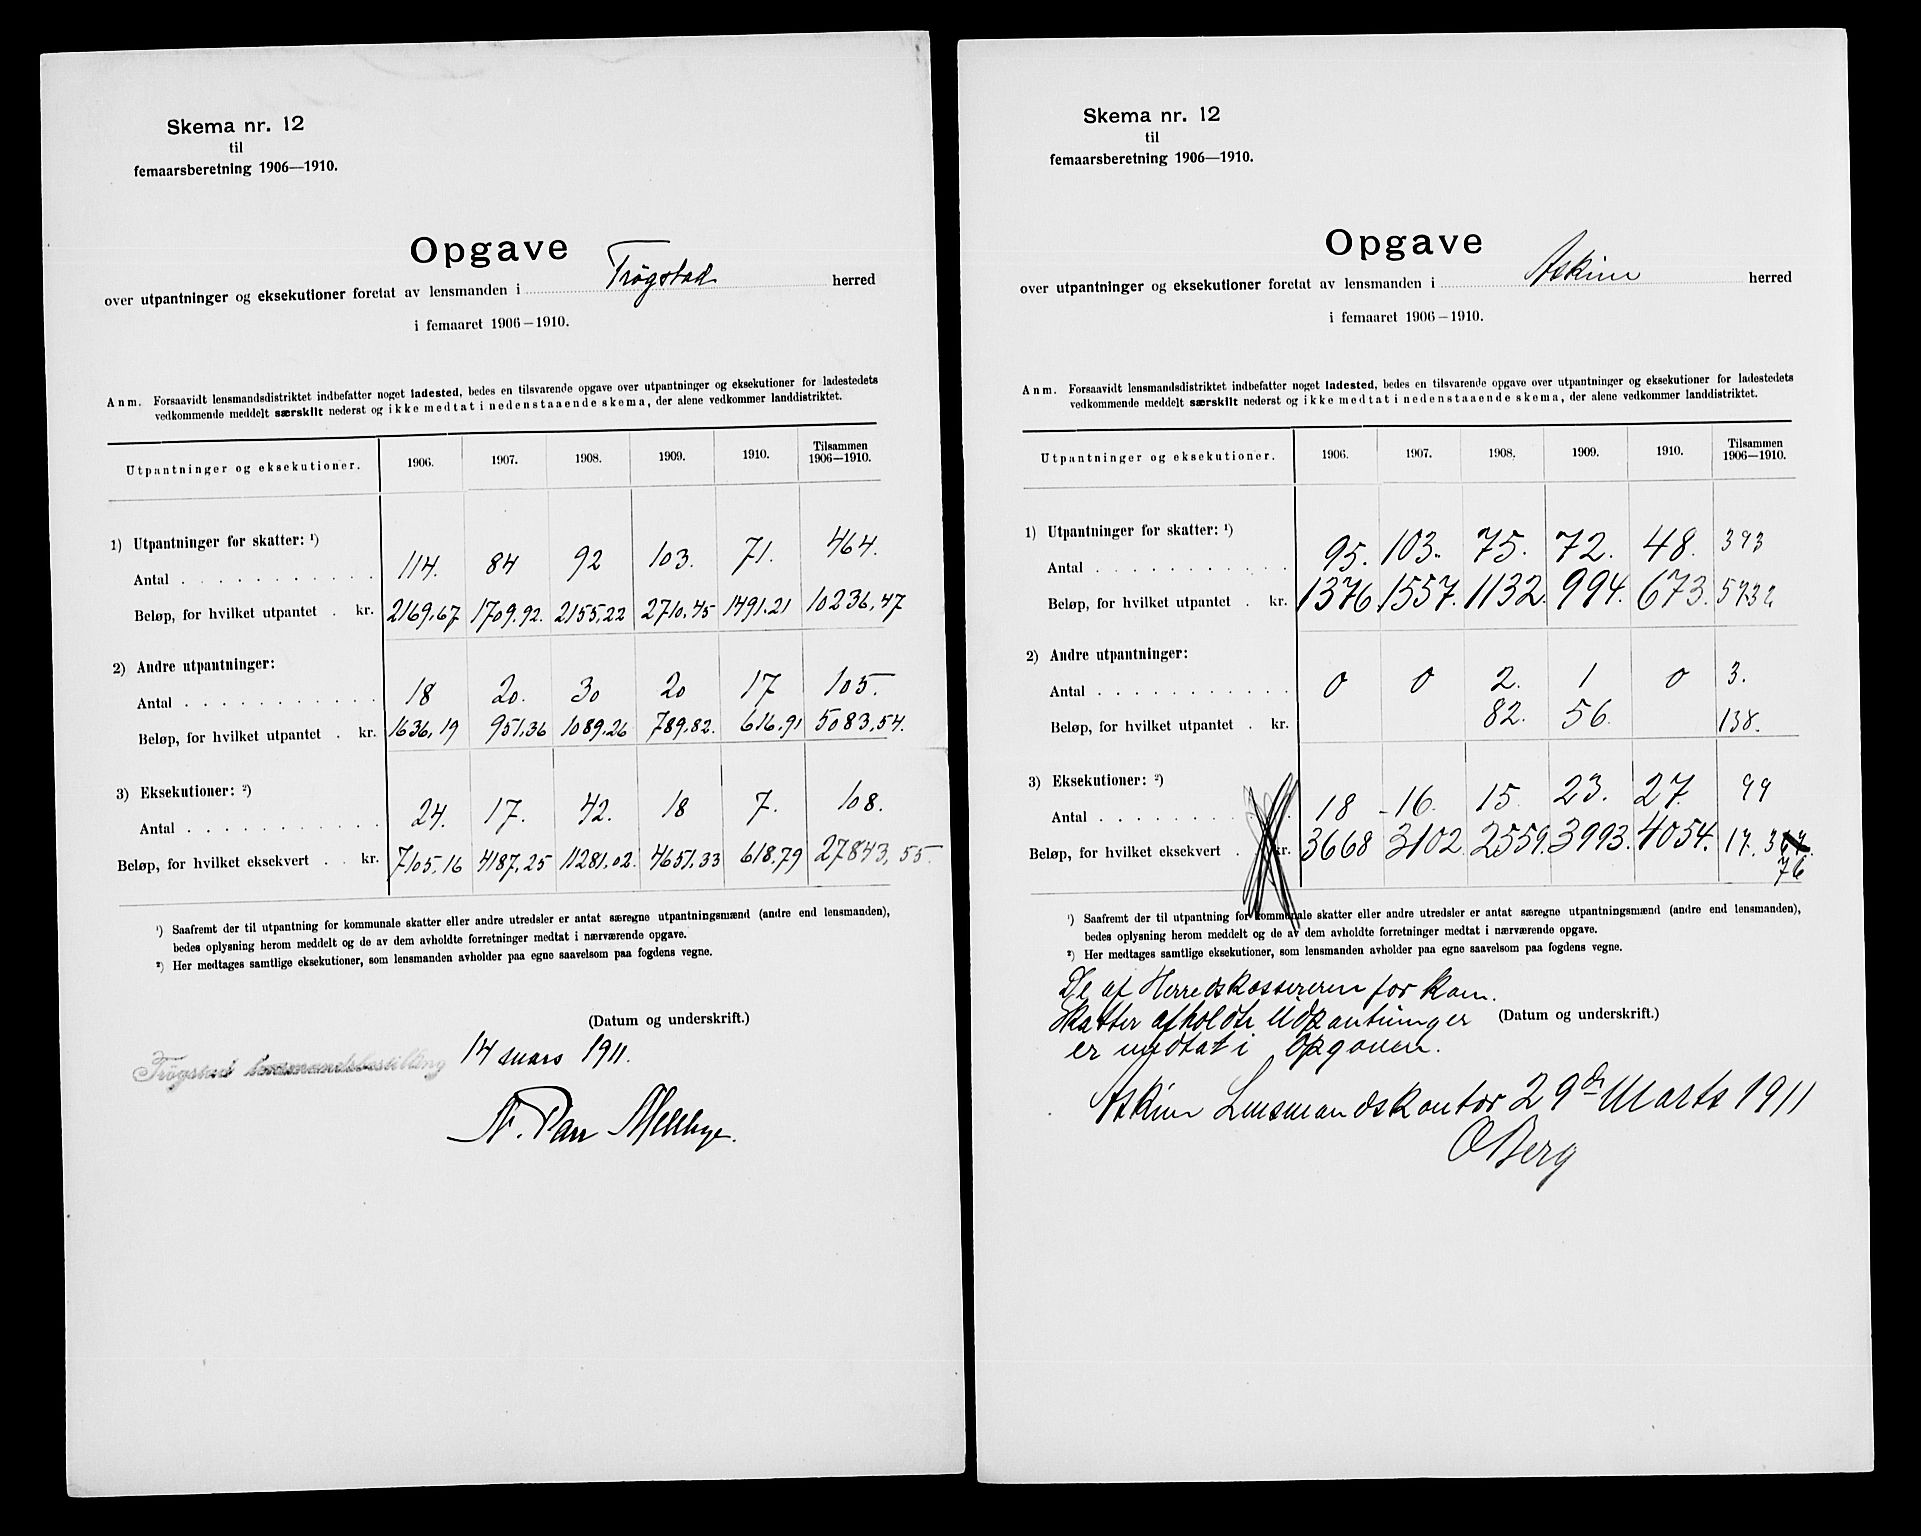 Skema nr. 12
til
femaarsberetning 1906—1910.
Opgave
over utpantninger og eksekutioner foretat av lensmanden i Trøgstad herred
i femaaret 1906—1910.
Anm. Forsaavidt lensmandsdistriktet indbefatter noget ladested, bedes en tilsvarende opgave over utpantninger og eksekutioner for ladestedets
vedkommende meddelt særskilt nederst og ikke medtat i nedenstaaende skema, der alene vedkommer landdistriktet.
Utpantninger og eksekutioner. 1906. 1907. 1908. 1909. 1910. Tilsammen
1906—1910.
1) Utpantninger for skatter: ¹)
Antal . . . . . . . . . . . 114. 84 92 103. 71. 464.
Beløp, for hvilket utpantet . kr. 2169,67 1709.92. 2155,22 2710.45 1491.21 10236,47
2) Andre utpantninger:
Antal . . . . . . . . . . . 18 20. 30 20 17 105.
Beløp, for hvilket utpantet . kr. 1636,19 951,36 1089.26 789,82. 616,91 5083,54.
3) Eksekutioner: ²)
Antal . . . . . . . . . . . 24. 17. 42. 18 7. 108.
Beløp, for hvilket eksekvert . . kr. 7105,16 4187,25 11281,02. 4651,33 618,79 27843,55.
¹) Saafremt der til utpantning for kommunale skatter eller andre utredsler er antat særegne utpantningsmænd (andre end lensmanden),
bedes oplysning herom meddelt og de av dem avholdte forretninger medtat i nærværende opgave.
²) Her medtages samtlige eksekutioner, som lensmanden avholder paa egne saavelsom paa fogdens vegne.
(Datum og underskrift.)
Trøgstad lensmandsbestilling 14 mars 1911.
N. Parr Mellbye.
Skema nr. 12
til
femaarsberetning 1906—1910.
Opgave
over utpantninger og eksekutioner foretat av lensmanden i Askim herred
i femaaret 1906—1910.
Anm. Forsaavidt lensmandsdistriktet indbefatter noget ladested, bedes en tilsvarende opgave over utpantninger og eksekutioner for ladestedets
vedkommende meddelt særskilt nederst og ikke medtat i nedenstaaende skema, der alene vedkommer landdistriktet.
Utpantninger og eksekutioner. 1906. 1907. 1908. 1909. 1910. Tilsammen
1906—1910.
1) Utpantninger for skatter: ¹)
Antal . . . . . . . . . . . 95. 103. 75. 72. 48. 393
Beløp, for hvilket utpantet . kr. 1376 1557. 1132. 994. 673. 5732
2) Andre utpantninger:
Antal . . . . . . . . . . . 0 0 2. 1 0 3.
Beløp, for hvilket utpantet . kr. 82. 56. 138.
3) Eksekutioner: ²)
Antal . . . . . . . . . 18 16. 15. 23. 27. 99
Beløp, for hvilket eksekvert . kr. 3668 3102 2559. 3993. 4054. 17.3
76
¹) Saafremt der til utpantning for kommunale skatter eller andre utredsler er antat særegne utpantningsmænd (andre end lensmanden),
bedes oplysning herom meddelt og de av dem avholdte forretninger medtat i nærværende opgave.
²) Her medtages samtlige eksekutioner, som lensmanden avholder paa egne saavelsom paa fogdens vegne.
De af Herredskassereren for kom.
Skatter afholdte Udpantninger (Datum og underskrift.)
er medtat i Opgaven.
Askim Lensmandskontor 29de Marts 1911
O Berg